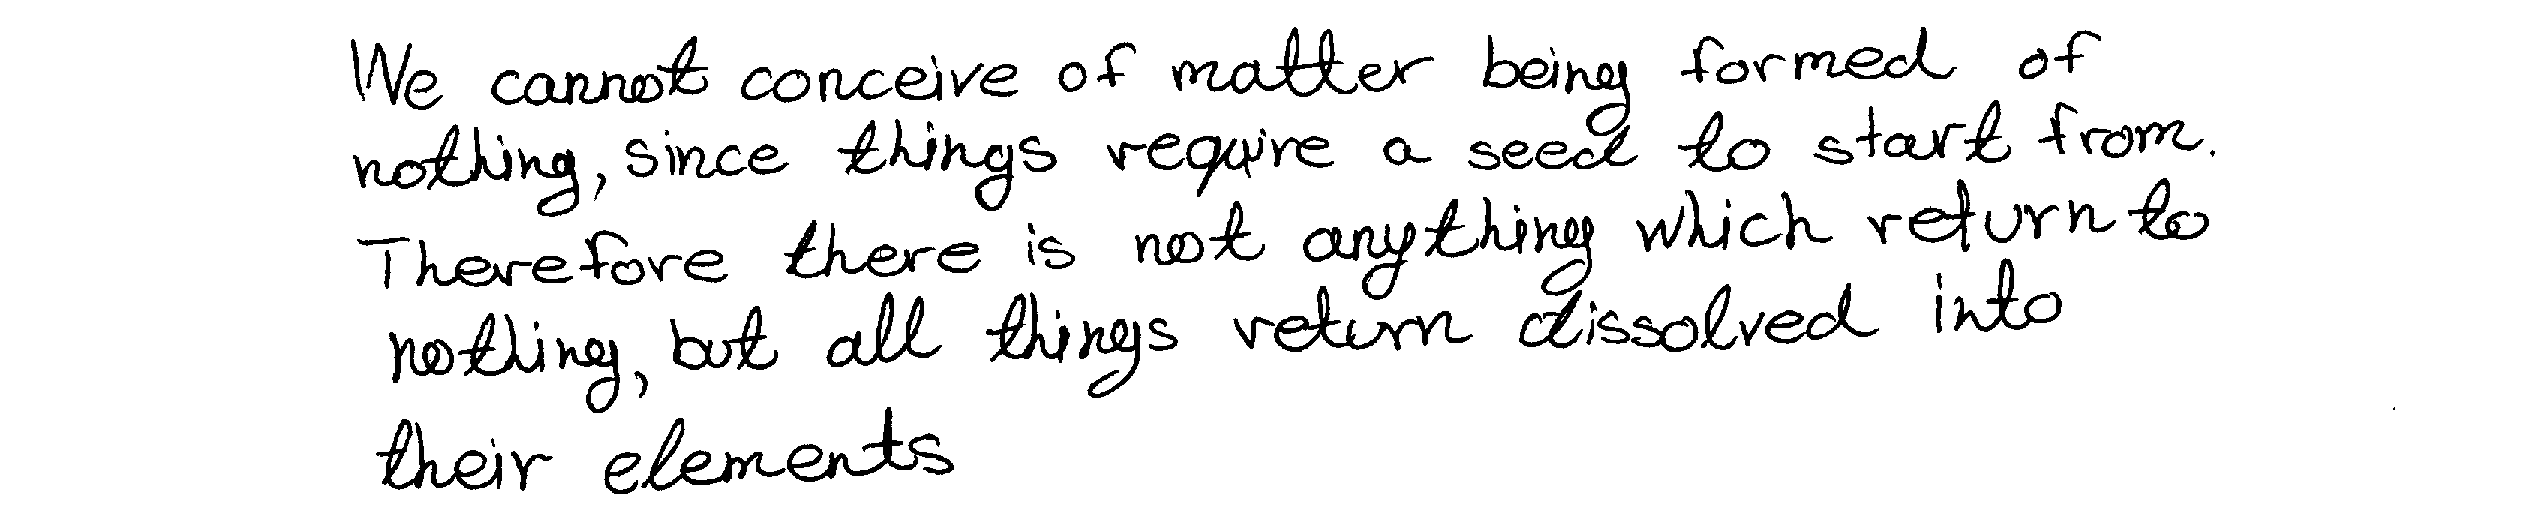 We cannot conceive of matter being formed of
nothing, since things require a seed to start from.
Therefore there is not anything which return to
nothing, but all things return dissolved into
their elements